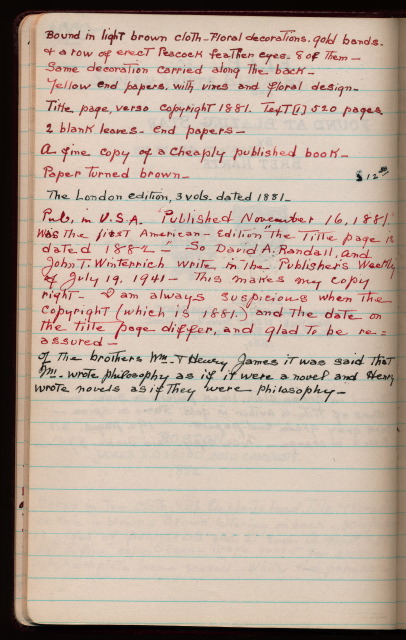 Bound in light brown cloth - Floral decorations. gold bands.
& a row of erect Peacock feather eyes. 8 of them -
Same decoration carried along the back -
Yellow End papers. with vines and floral design -
Title page, verso copyright 1881. Text [1] 520 pages
2 blank leaves. End papers -
A fine copy of a Cheaply published book -
Paper turned brown -
$12.00
The London edition, 3 vols. dated 1881 -
Pub. in U.S.A. "Published November 16, 1881"
Was the first American - Edition "The Title page is
dated 1882 -" So David A. Randall, and
John T. Winterrich write in the Publisher's Weekly
of July 19, 1941 - This makes my copy
right - I am always Suspicious when the
Copyright (which is 1881.) and the date on
the title page differ, and glad to be re=
assured -
Of the brothers Wm. & Henry James it was said that
Wm. wrote philosophy as if it were a novel and Henry
wrote novels as if they were philosophy -